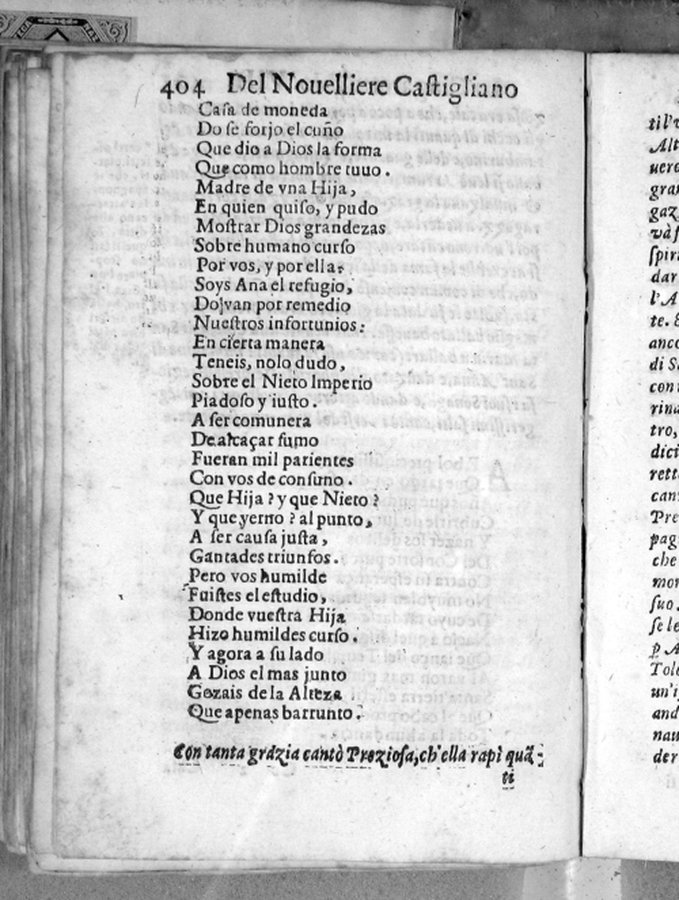 404 Del Nouelliere Castigliano
Casa de moneda
Do se forjo el cuño
Que dio a Dios la forma
Que como hombre tuuo.
Madre de vna Hija,
En quien quiso, y pudo
Mostrar Dios grandezas
Sobre humano curso
Por vos, y por ella,
Soys Ana el refugio,
Do van por remedio
Nuestros infortunios:
En cierta manera
Teneis, nolo dudo,
Sobre el Nieto Imperio
Piadoso y iusto.
A ser comunera
De alcaçar sumo
Fueran mil parientes
Con vos de consuno.
Que Hija? y que Nieto?
Y que yerno? al punto,
A ser causa justa,
Gantades triunfos.
Pero vos humilde
Fuistes el estudio,
Donde vuestra Hija
Hizo humildes curso.
Y agora a su lado
A Dios el mas junto
Gozais de la Alteza
Que apenas barrunto.
Con tanta grazia cantò Preziosa, ch'ella rapì quã-
ti
til'
Alt
uere
gra
gaz
spir
dar
l'A
te.
anco
di S
con
rina
tro,
dici
rett
can
Pre
pag
che
mor
suo.
se le
Tole
un'i
and
nau
der